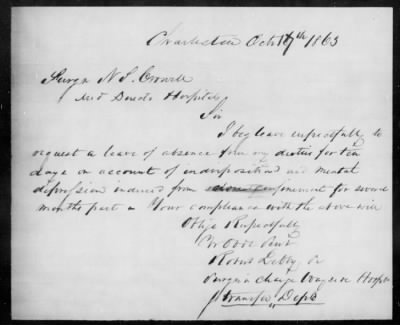 Charleston Oct 17th 1863
Surgn N. S. Crowell
Med Director Hospitals
Sir
I beg leave respectfully to
request a leave of absence from my duties for ten
days on account of indisposition and mental
depression induced from confinement for several
months past. Your compliance with the above will
Oblige Respectfully
Your Obdt Servt
Robert Lebby, Dr
Surgn in charge Wayside Hospt
Transfer Dept